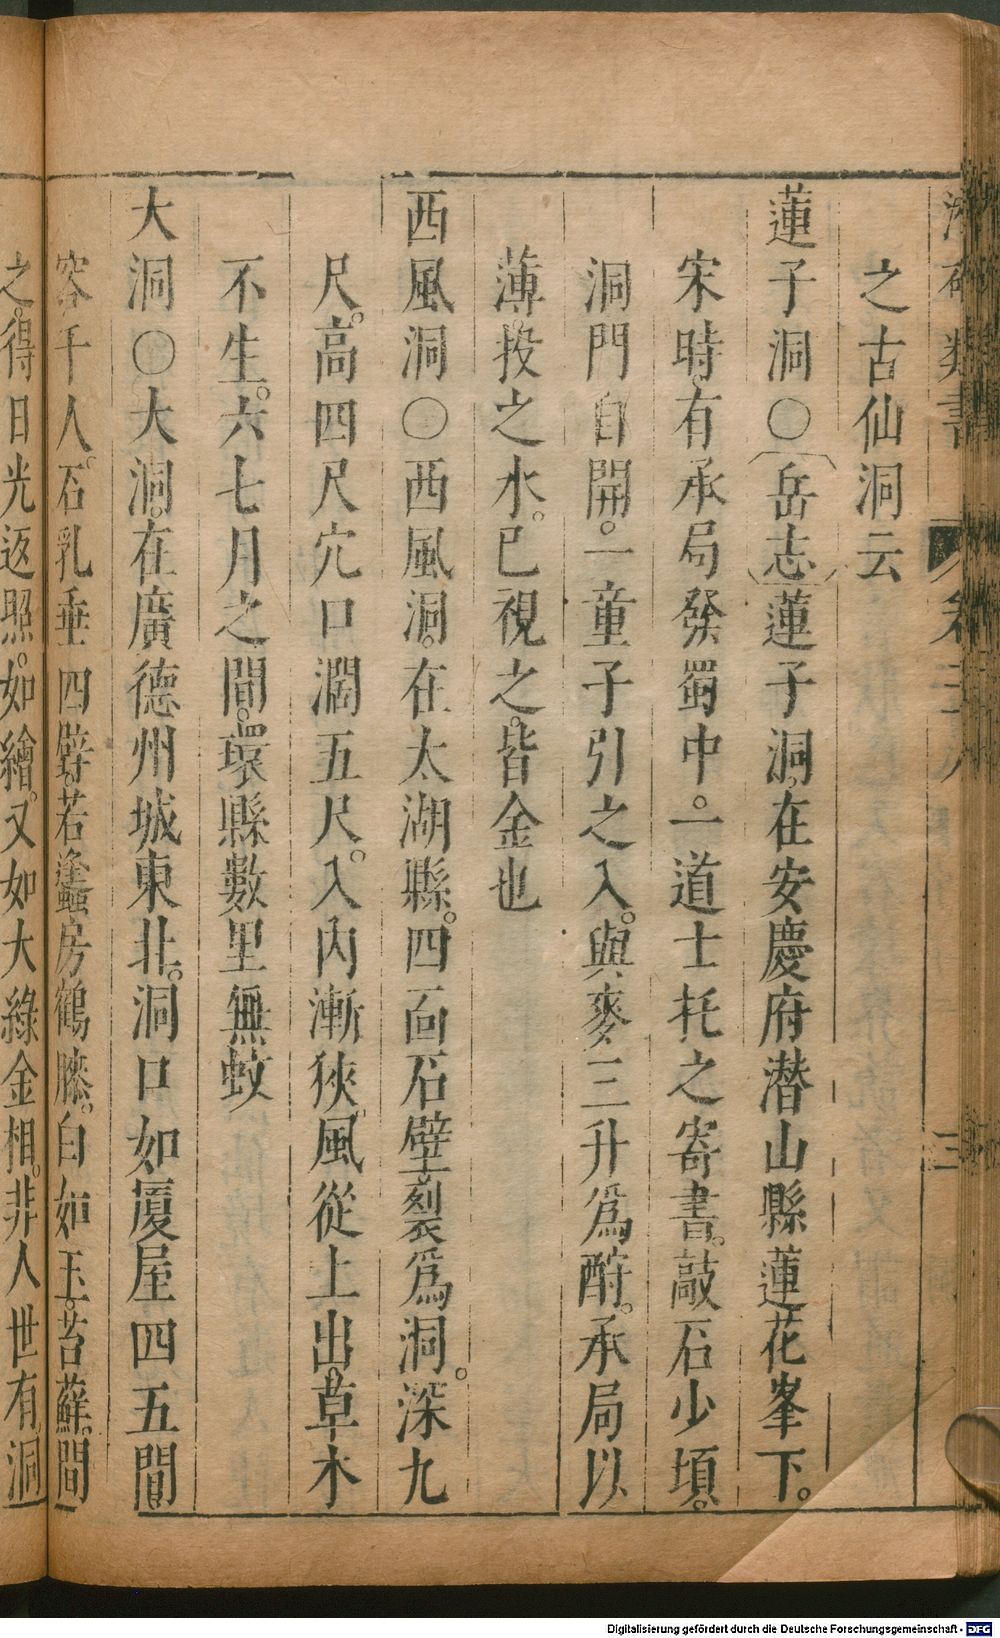 類書
卷三
三
之古仙洞云
蓮子洞○岳志蓮子洞在安慶府潛山縣蓮花峯下。
宋時。有承局發蜀中。一道士托之寄書。敲石少頃。
洞門自開。一童子引之入。與麥三升爲酧。承局以
薄。投之水。已視之。皆金也
西風洞○西風洞。在太湖縣。四面石壁裂爲洞。深九
尺。高四尺穴口濶五尺。入內漸狹。風從上出。草木
不生。六七月之間。環縣數里無蚊
大洞○大洞。在廣德州城東北。洞口如厦屋四五間
容千人。石乳垂四壁。若蠭房鶴膝。白如玉。苔蘚。間
之。得日光返照。如繪。又如大綠金相。非人世有。洞
Digitalisierung gefördert durch die Deutsche Forschungsgemeinschaft - DFG